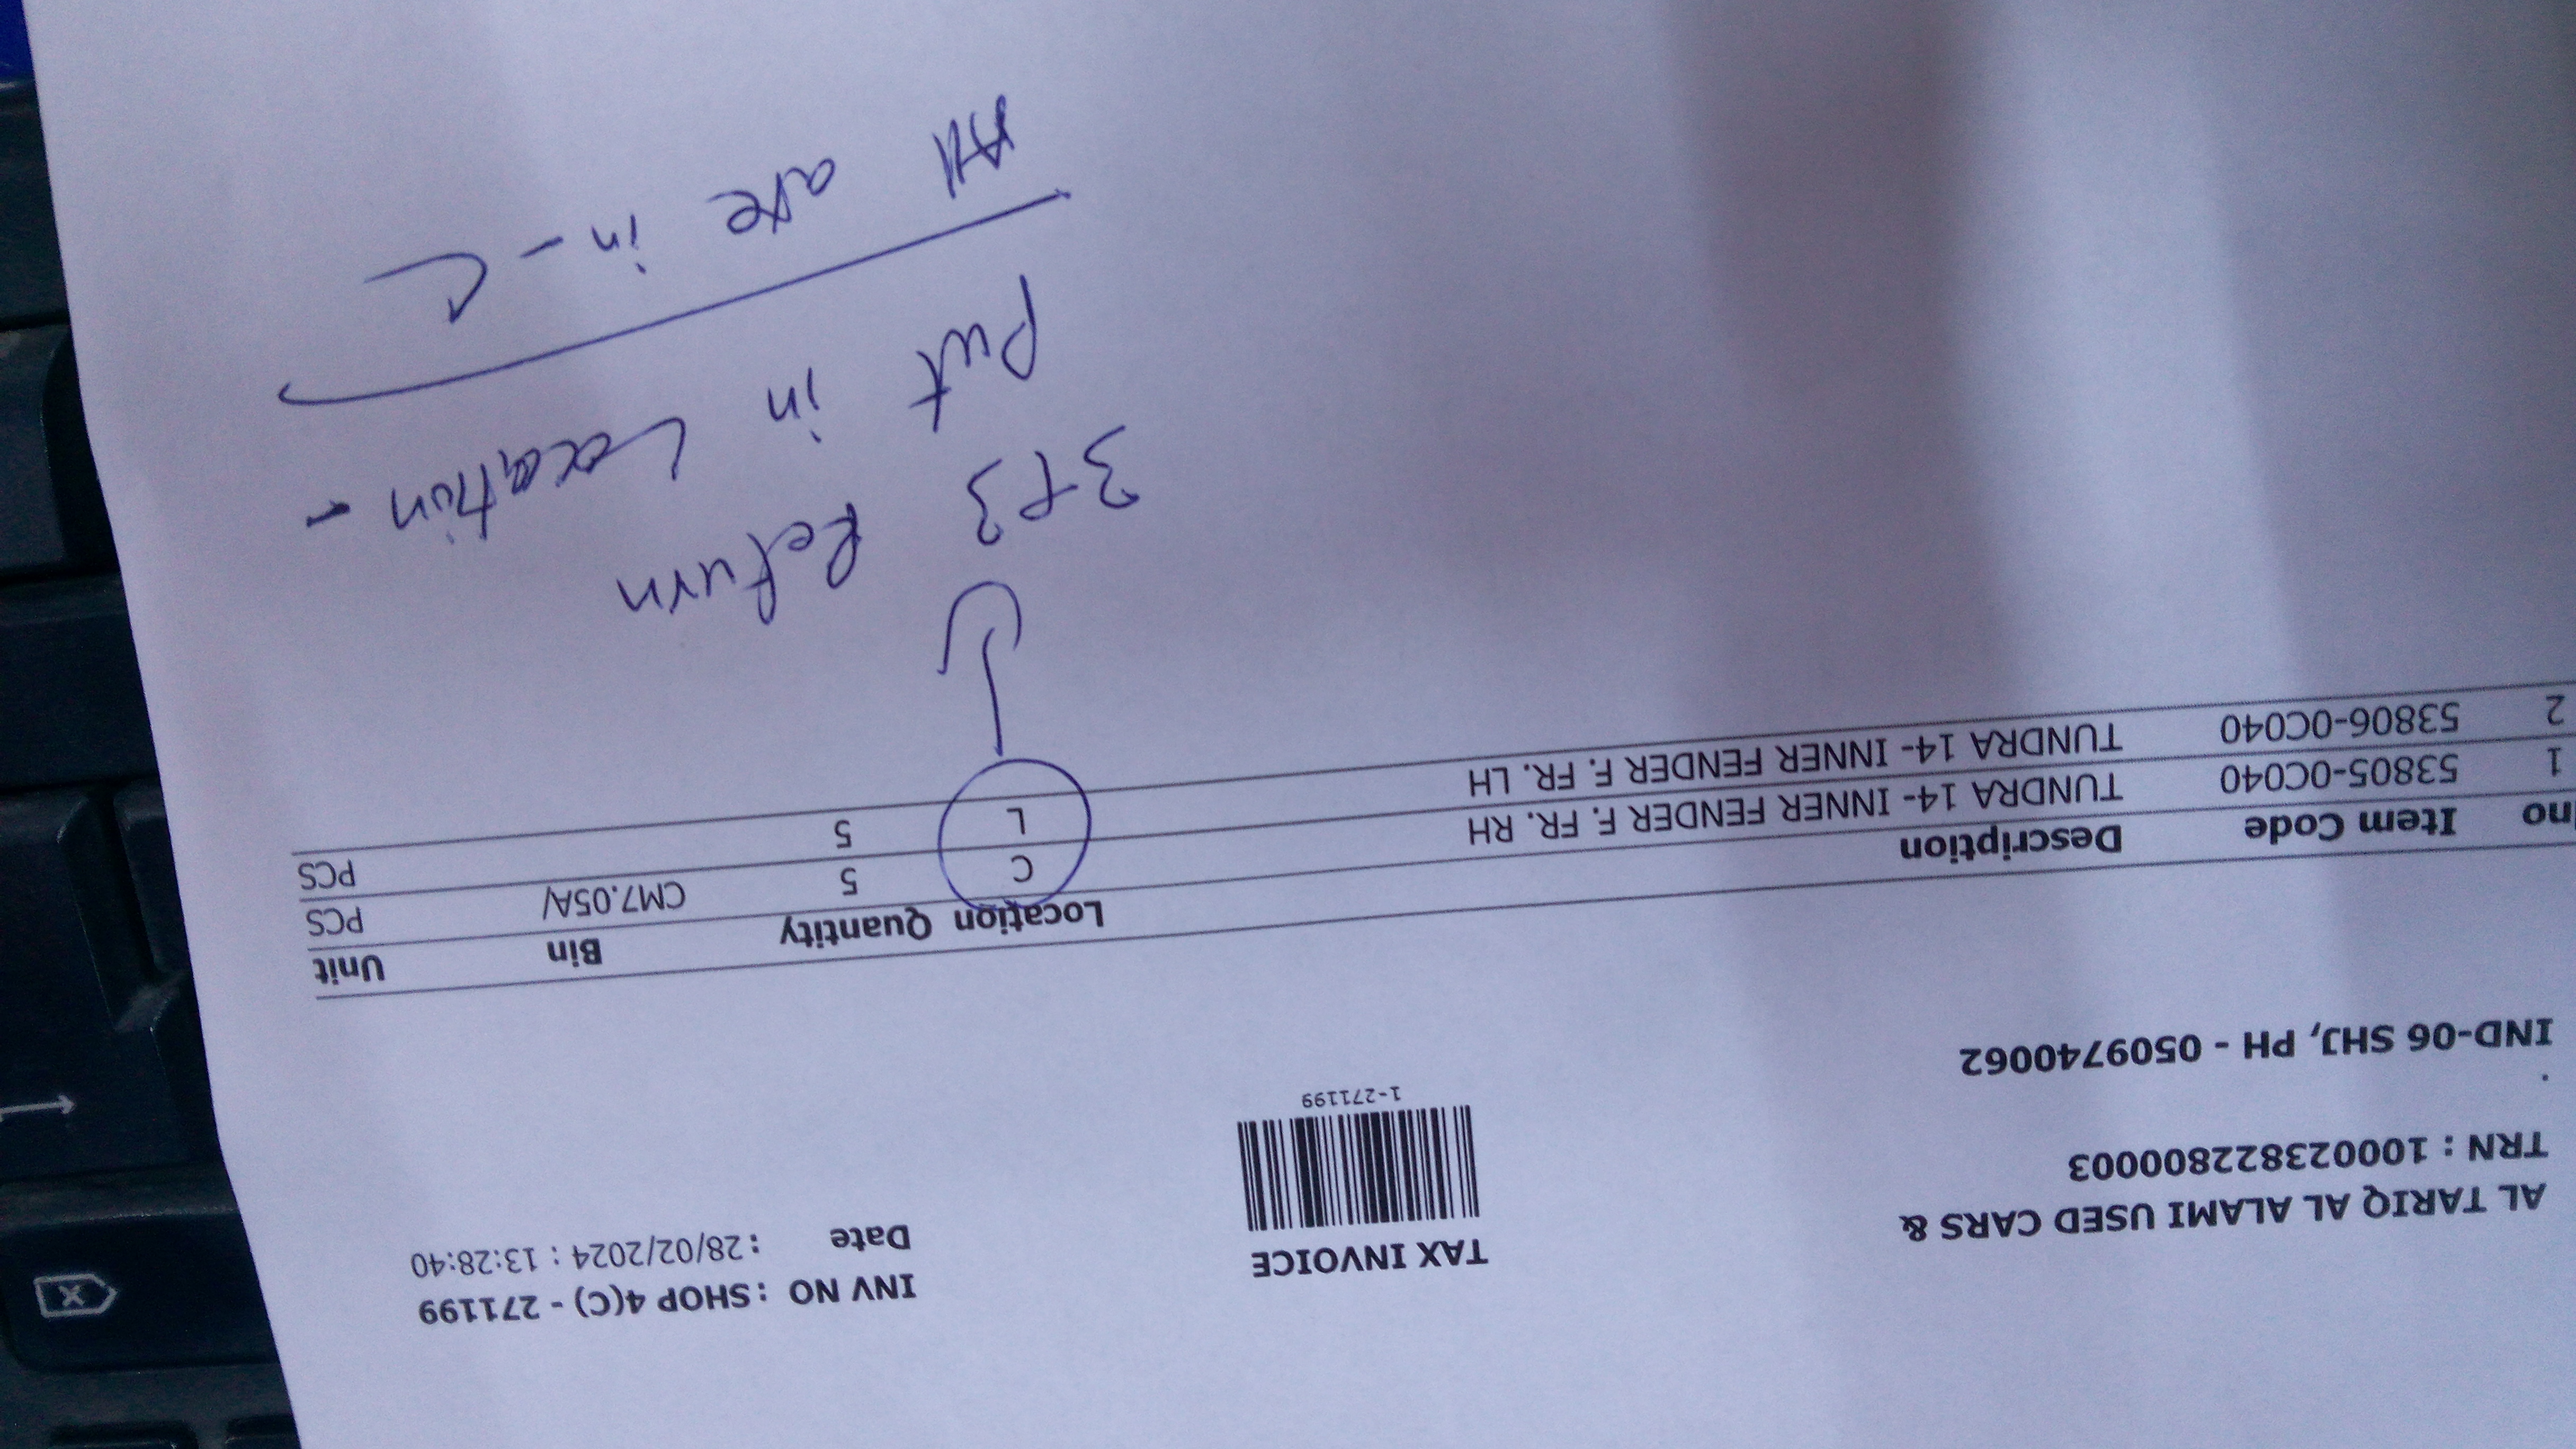 AL TARIQ AL ALAMI USED CARS &
TRN : 100023822800003
.
IND-06 SHJ, PH - 0509740062
TAX INVOICE
1-271199
INV NO : SHOP 4(C) - 271199
Date : 28/02/2024 : 13:28:40
no Item Code Description Location Quantity Bin Unit
1 53805-0C040 TUNDRA 14- INNER FENDER F. FR. RH C 5 CM7.05A/ PCS
2 53806-0C040 TUNDRA 14- INNER FENDER F. FR. LH L 5 PCS
3+3 Return
Put in Location -
All are in - C